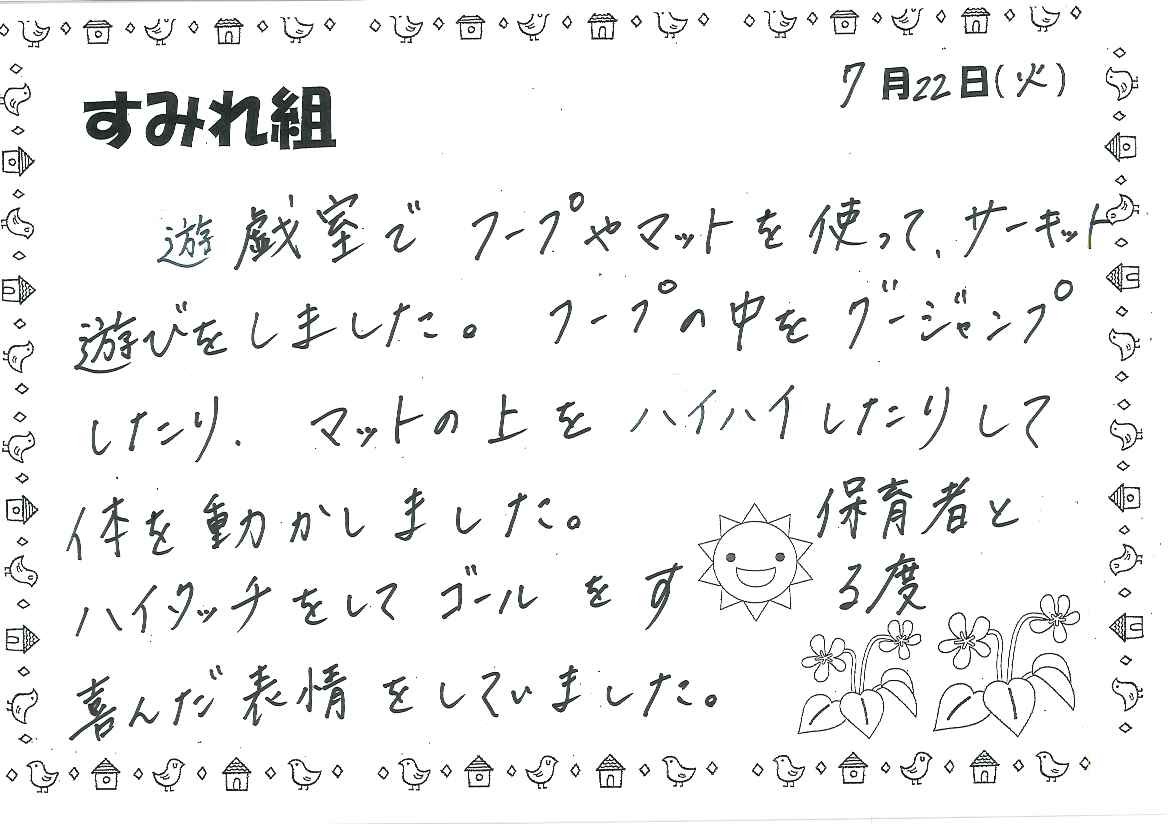 すみれ組
7月22日(火)
遊戯室でフープやマットを使って、サーキット
遊びをしました。フープの中をグージャンプ
したり、マットの上をハイハイしたりして
体を動かしました。保育者と
ハイタッチをしてゴールをする度
喜んだ表情をしていました。